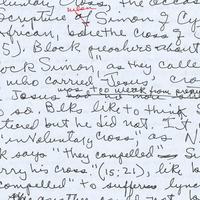 voluntary Cross, the occas
Scripture of Simon of Cy
African, bore the cross of
5). Black preachers about
ock Simon," as they calle
who carried Jesus' cros
was too weak from
Jesus had no
to so. Blks like to think S
tered but he did not. It
"inVoluntary Cross," as N
k says "they compelled" S
rry his cross" (15:21), like b
compelled" to suffer lync